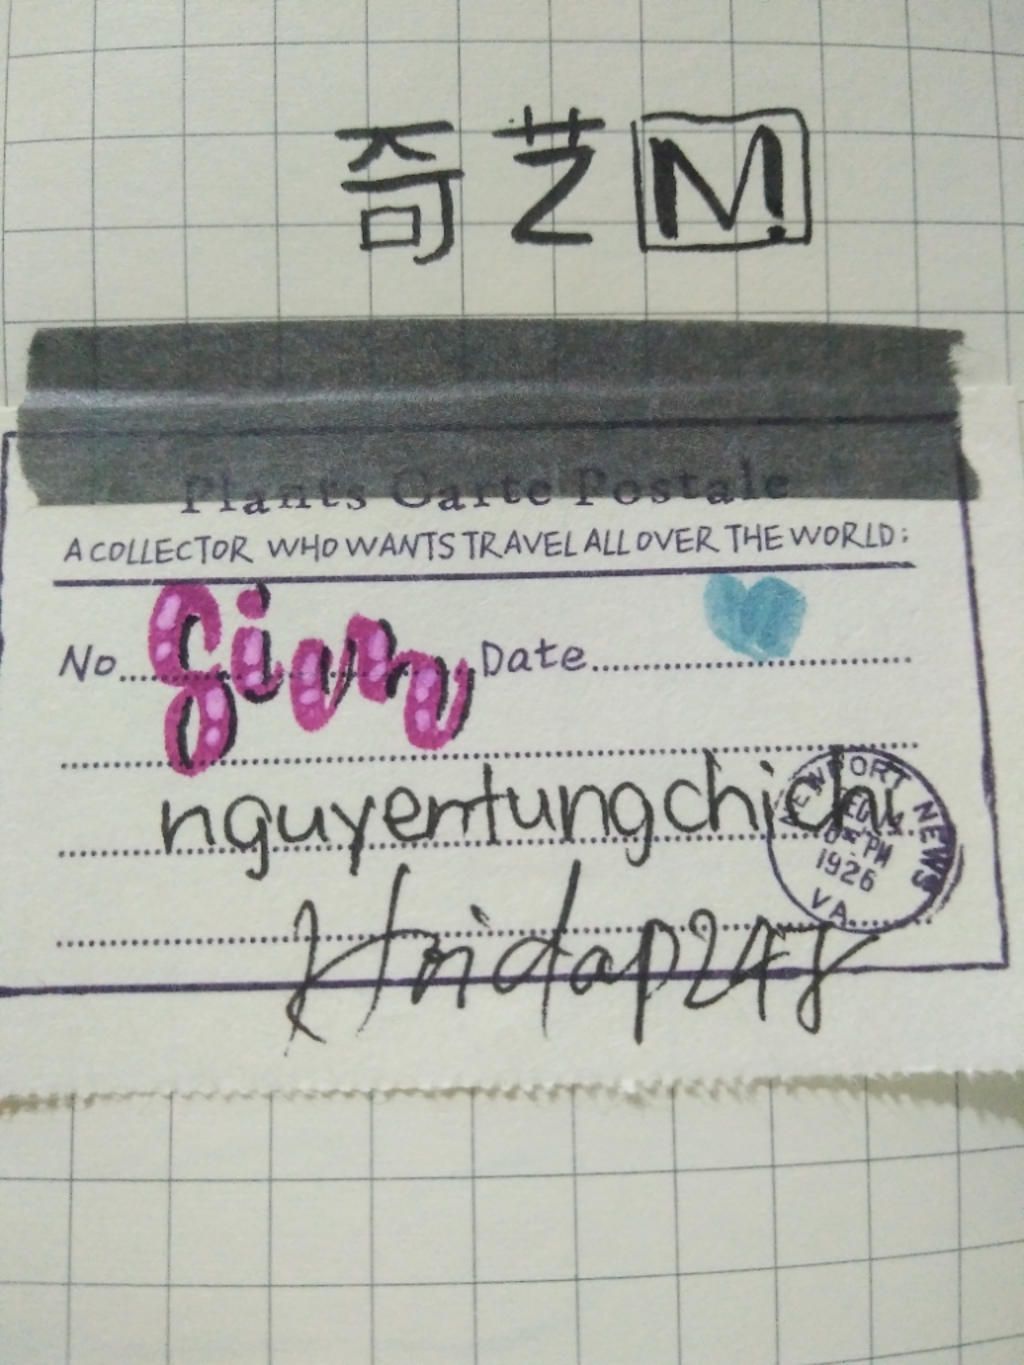 奇艺M
Plants Carte Postale
A COLLECTOR WHO WANTS TRAVEL ALL OVER THE WORLD:
No. Date
nguyentungchichi
NEWPORT NEWS
PM
1926
VA.